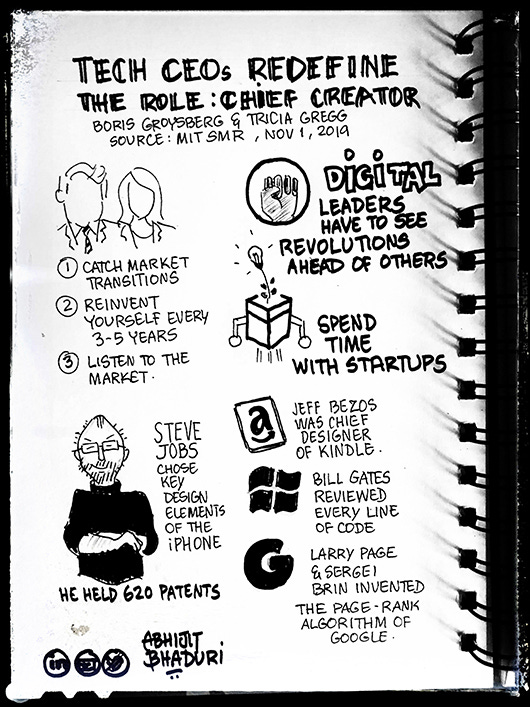 TECH CEOs REDEFINE
THE ROLE: CHIEF CREATOR
BORIS GROYSBERG & TRICIA GREGG
SOURCE: MIT SMR, NOV 1, 2019
① CATCH MARKET
TRANSITIONS
② REINVENT
YOURSELF EVERY
3-5 YEARS
③ LISTEN TO THE
MARKET.
DIGITAL
LEADERS
HAVE TO SEE
REVOLUTIONS
AHEAD OF OTHERS
SPEND
TIME
WITH STARTUPS
STEVE
JOBS
CHOSE
KEY
DESIGN
ELEMENTS
OF THE
iPHONE
HE HELD 620 PATENTS
a
JEFF BEZOS
WAS CHIEF
DESIGNER
OF KINDLE.
BILL GATES
REVIEWED
EVERY LINE
OF CODE
G
LARRY PAGE
& SERGEI
BRIN INVENTED
THE PAGE-RANK
ALGORITHM OF
GOOGLE.
in
ABHIJIT
BHADURI